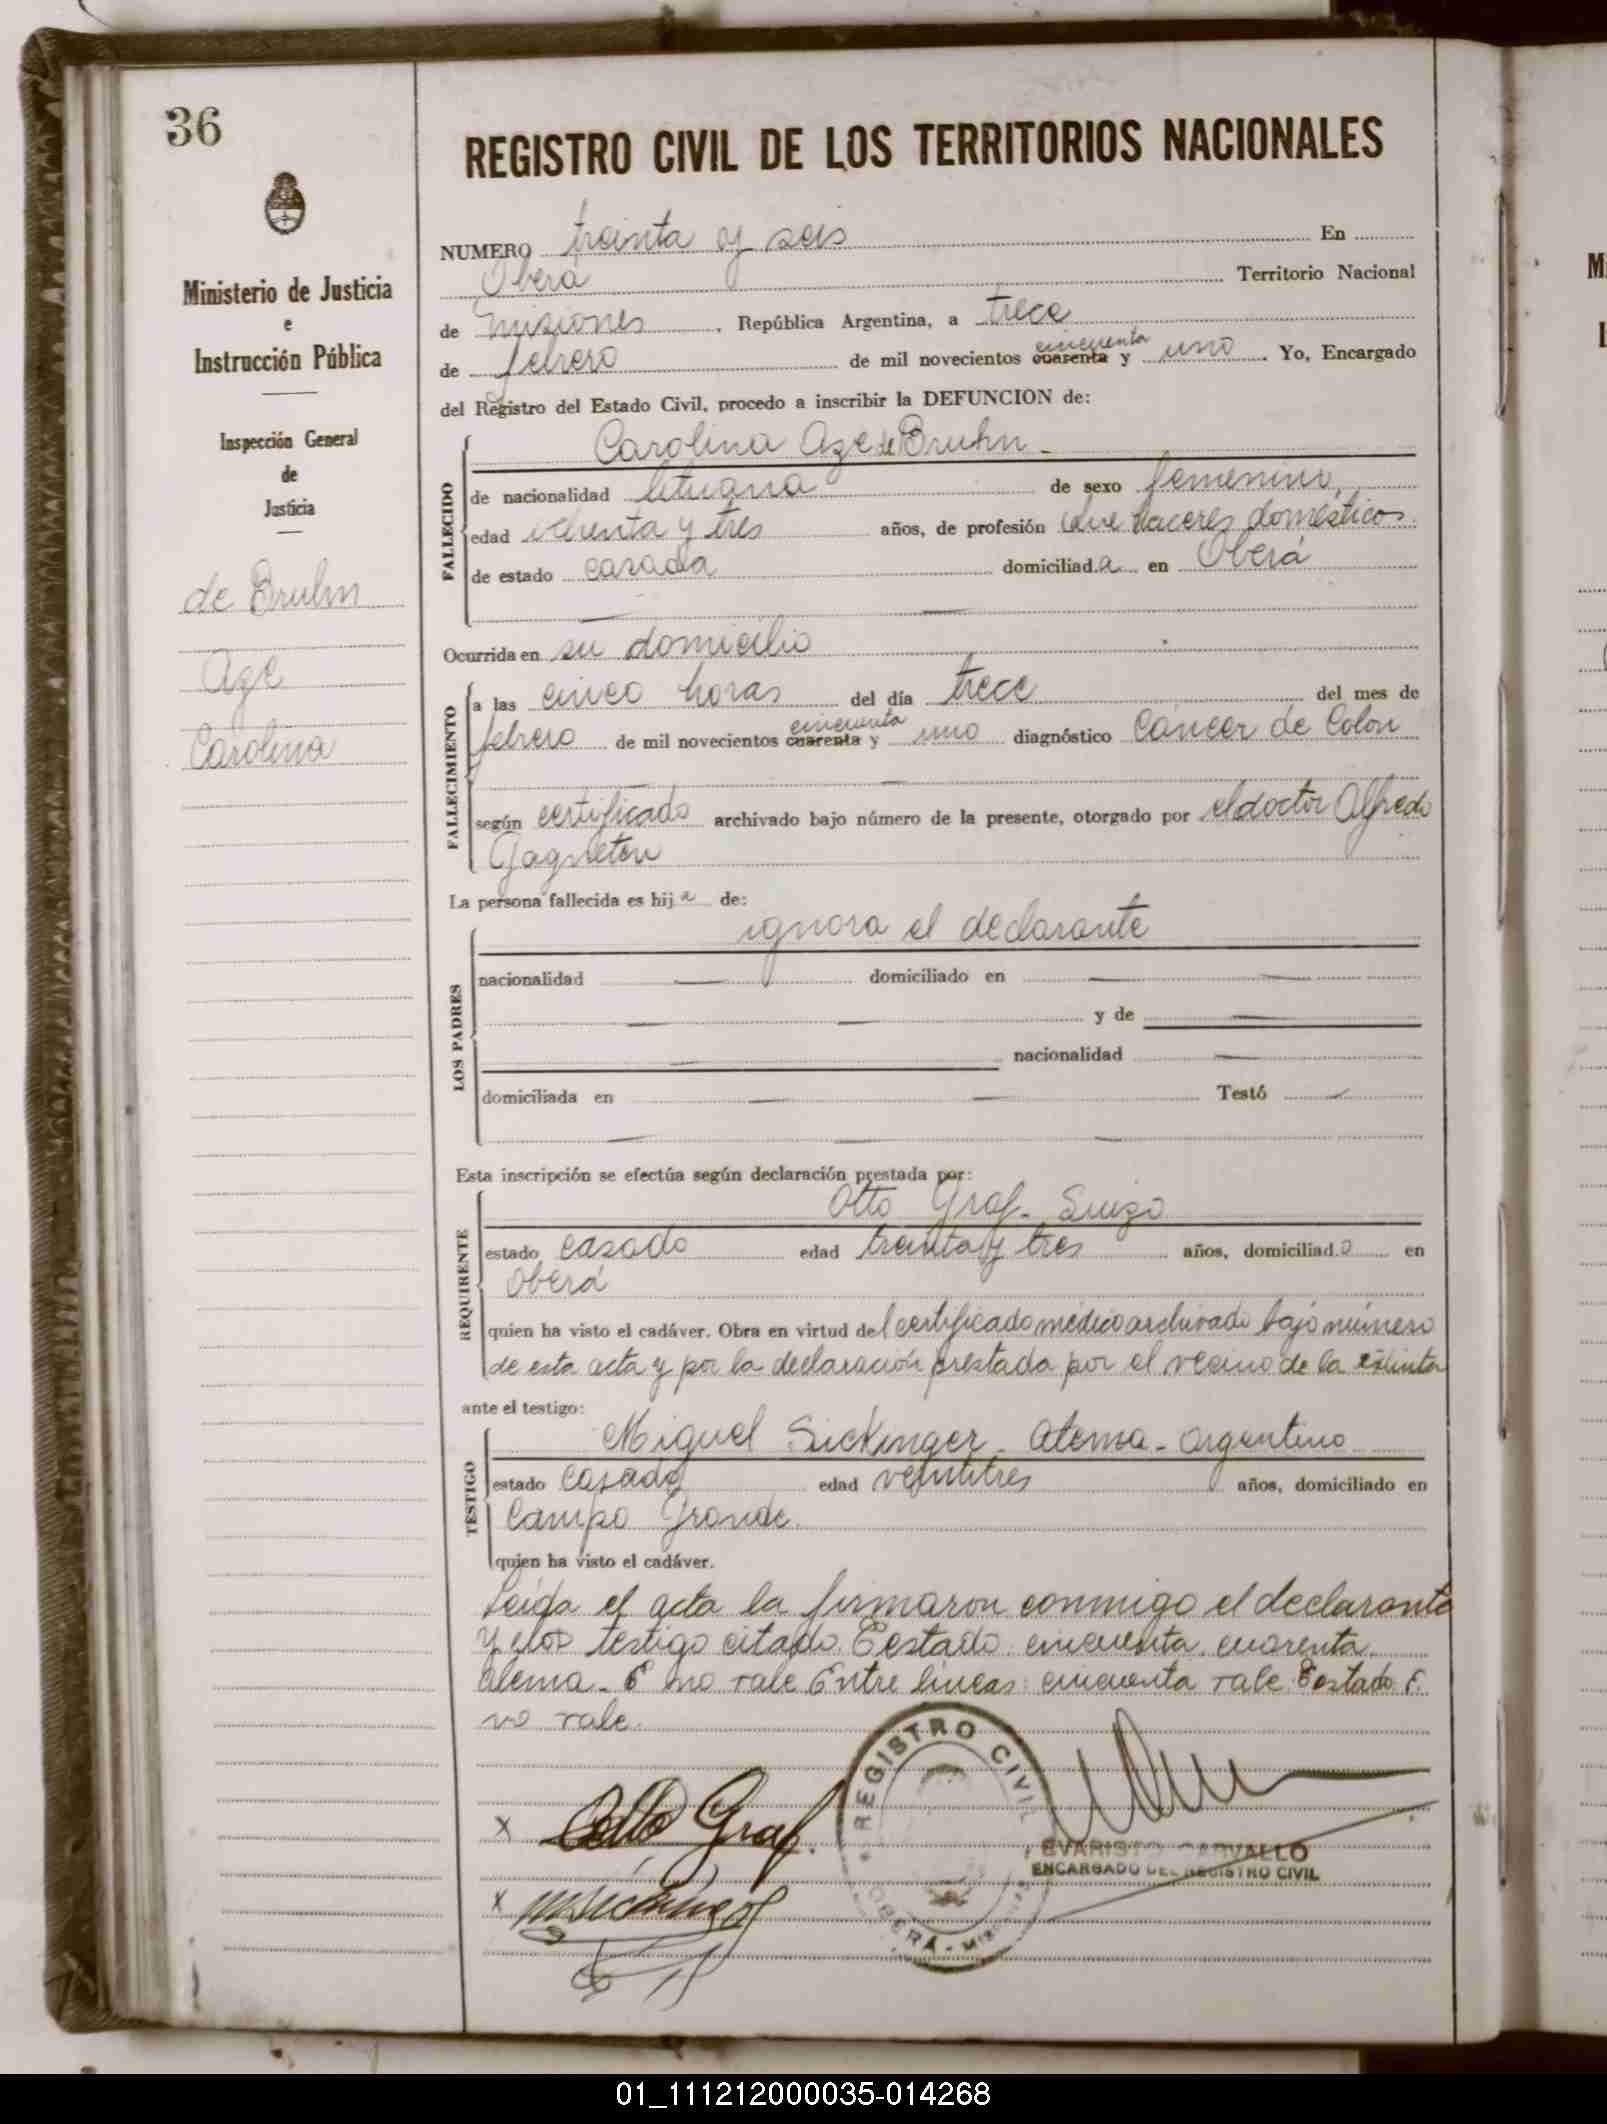 36
Ministerio de Justicia
e
Instrucción Pública
Inspección General
de
Justicia
de Bruhn
Aze
Carolina
REGISTRO CIVIL DE LOS TERRITORIOS NACIONALES
NUMERO treinta y seis En
Oberá Territorio Nacional
de misiones, República Argentina, a trece
de febrero de mil novecientos cuarenta cincuenta y uno. Yo, Encargado
del Registro del Estado Civil, procedo a inscribir la DEFUNCION de:
FALLECIDO
Carolina Aze de Bruhn
de nacionalidad lituana de sexo femenino,
edad ochenta y tres años, de profesión Que haceres domésticos
de estado casada domiciliada en Oberá
Ocurrida en su domicilio
FALLECIMIENTO
a las cinco horas del día trece del mes de
febrero de mil novecientos cuarenta cincuenta y uno diagnóstico Cáncer de Colon
según certificado archivado bajo número de la presente, otorgado por el doctor Alfredo
La persona fallecida es hija de:
LOS PADRES
ignora el declarante
nacionalidad domiciliado en
y de
nacionalidad
domiciliada en Testó
Esta inscripción se efectúa según declaración prestada por:
REQUIRENTE
Otto Graf - Suizo
estado casado edad treinta y tres años, domiciliado en
Oberá
quien ha visto el cadáver. Obra en virtud del certificado médico archivado bajo número
de esta acta y por la declaración prestada por el vecino de la extinta
ante el testigo:
TESTIGO
Miguel Sickinger - alema - argentino
estado casado edad veintitres años, domiciliado en
Campo Grande.
quien ha visto el cadáver.
Leída el acta la firmaron conmigo el declarante
y el testigo citado. Testado: cincuenta. cuarenta.
alema - E no vale Entre líneas: cincuenta vale Testado E.
no vale.
x Otto Graf.
x
REGISTRO CIVIL
OBERÁ - MISIONES
EVARISTO CARVALLO
ENCARGADO DEL REGISTRO CIVIL
01_111212000035-014268